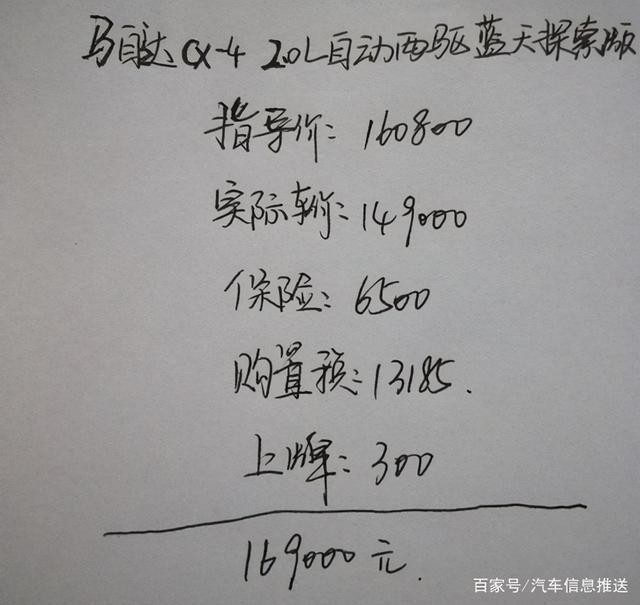 马自达 CX-4 2.0L自动两驱蓝天探索版
指导价：160800
实际车价：149000
保险：6500
购置税：13185.
上牌：300
169000元.
百家号/汽车信息推送